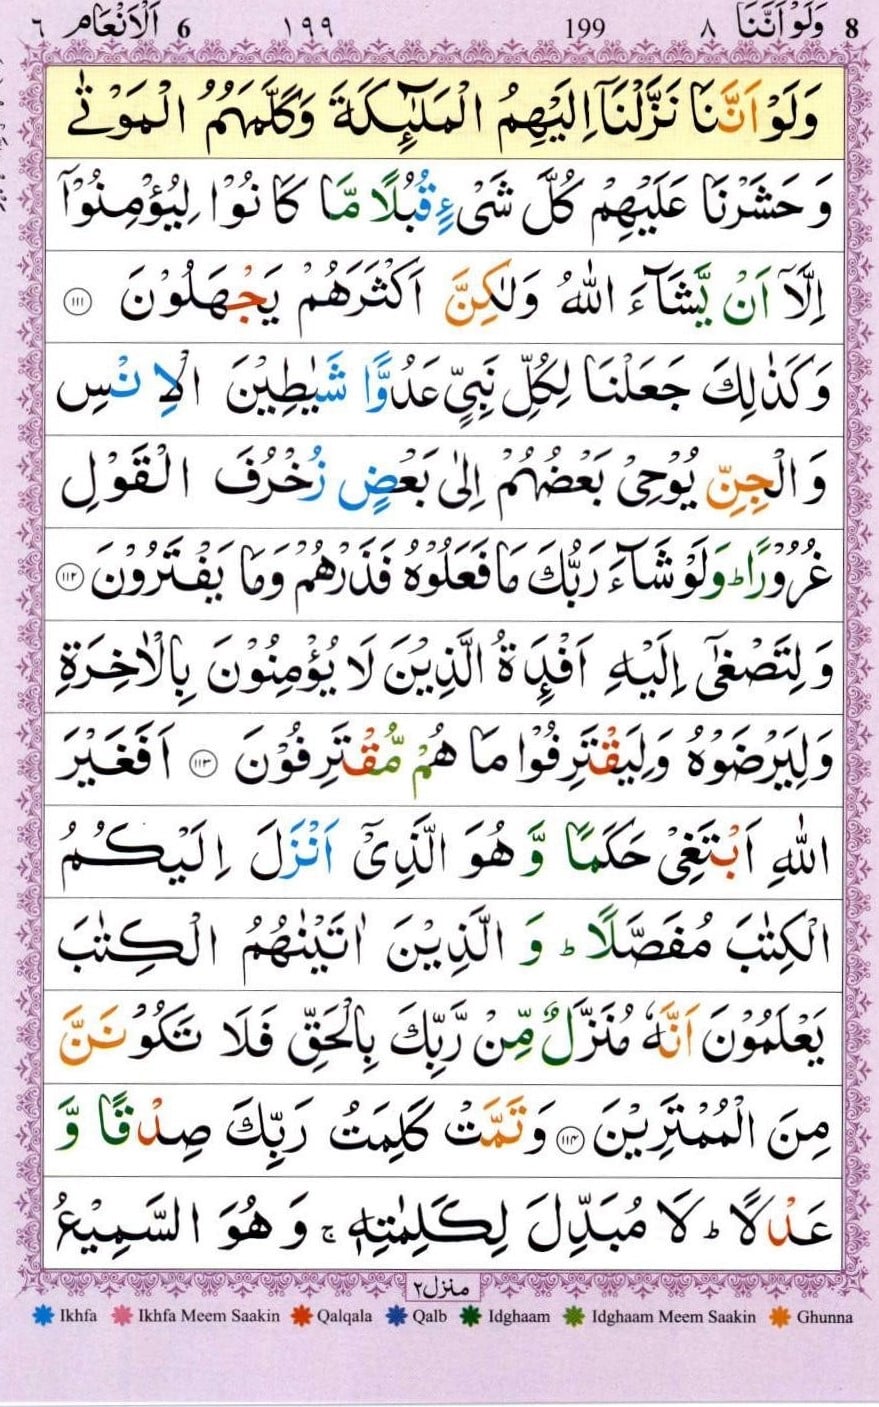 8 وَلَوْ اَنَّنَا ٨ 199 ١٩٩ 6 اَلْاَنْعَام ٦
وَلَوْ اَنَّنَا نَزَّلْنَاۤ اِلَیْهِمُ الْمَلٰٓئِكَةَ وَكَلَّمَهُمُ الْمَوْتٰی
وَحَشَرْنَا عَلَیْهِمْ كُلَّ شَیْءٍ قُبُلًا مَّا كَانُوْا لِیُؤْمِنُوْۤا
اِلَّاۤ اَنْ یَّشَآءَ اللّٰهُ وَلٰكِنَّ اَكْثَرَهُمْ یَجْهَلُوْنَ ﴿١١١﴾
وَكَذٰلِكَ جَعَلْنَا لِكُلِّ نَبِیٍّ عَدُوًّا شَیٰطِیْنَ الْاِنْسِ
وَالْجِنِّ یُوْحِیْ بَعْضُهُمْ اِلٰی بَعْضٍ زُخْرُفَ الْقَوْلِ
غُرُوْرًا ؕ وَلَوْ شَآءَ رَبُّكَ مَا فَعَلُوْهُ فَذَرْهُمْ وَمَا یَفْتَرُوْنَ ﴿١١٢﴾
وَلِتَصْغٰۤی اِلَیْهِ اَفْـِٕدَةُ الَّذِیْنَ لَا یُؤْمِنُوْنَ بِالْاٰخِرَةِ
وَلِیَرْضَوْهُ وَلِیَقْتَرِفُوْا مَا هُمْ مُّقْتَرِفُوْنَ ﴿١١٣﴾ اَفَغَیْرَ
اللّٰهِ اَبْتَغِیْ حَكَمًا وَّهُوَ الَّذِیْۤ اَنْزَلَ اِلَیْكُمُ
الْكِتٰبَ مُفَصَّلًا ؕ وَالَّذِیْنَ اٰتَیْنٰهُمُ الْكِتٰبَ
یَعْلَمُوْنَ اَنَّهٗ مُنَزَّلٌ مِّنْ رَّبِّكَ بِالْحَقِّ فَلَا تَكُوْنَنَّ
مِنَ الْمُمْتَرِیْنَ ﴿١١٤﴾ وَتَمَّتْ كَلِمَتُ رَبِّكَ صِدْقًا وَّ
عَدْلًا ؕ لَا مُبَدِّلَ لِكَلِمٰتِهٖ ۚ وَهُوَ السَّمِیْعُ
منزل٢
Ikhfa Ikhfa Meem Saakin Qalqala Qalb Idghaam Idghaam Meem Saakin Ghunna